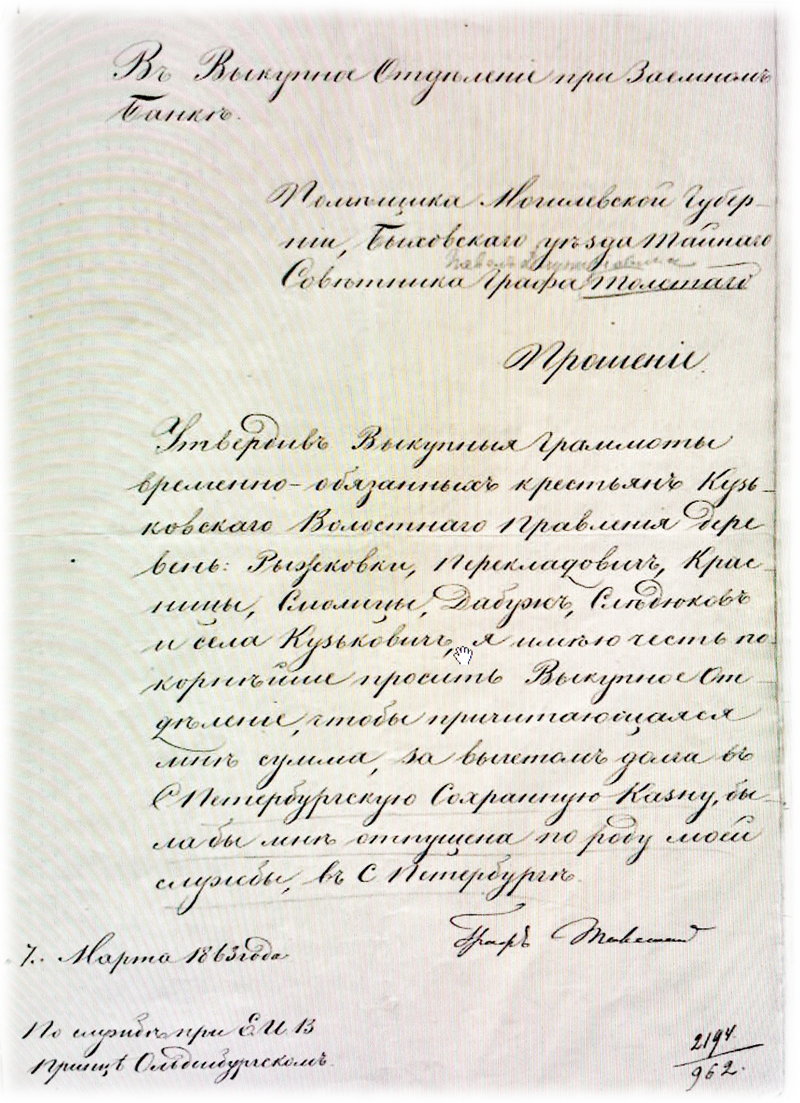 Въ Выкупное Отдѣленіе при Заемномъ
Банкѣ.
Помѣщика Могилевской Губер-
ніи, Быховскаго уѣзда Тайнаго
Совѣтника Графа Толстаго
Прошеніе.
Утвердивъ Выкупныя Граммоты
временно-обязанныхъ крестьянъ Кузь-
ковскаго Волостнаго Правленія дере
вень: Рыжковки, Перекладовичъ, Крас-
ницы, Смолицы, Дабужъ, Слѣдюковъ
и села Кузьковичъ, я имѣю честь по-
корнѣйше просить Выкупное От-
дѣленіе, чтобы причитающаяся
мнѣ сумма, за вычетомъ долга въ
С Петербургскую Сохранную Казну, бы-
ла бы мнѣ отпущена по роду моей
службы, въ С Петербургѣ.
Графъ Толстой
7. Марта 1863 года
По службѣ при Е И В
Принцѣ Ольденбургскомъ.
2194
962.